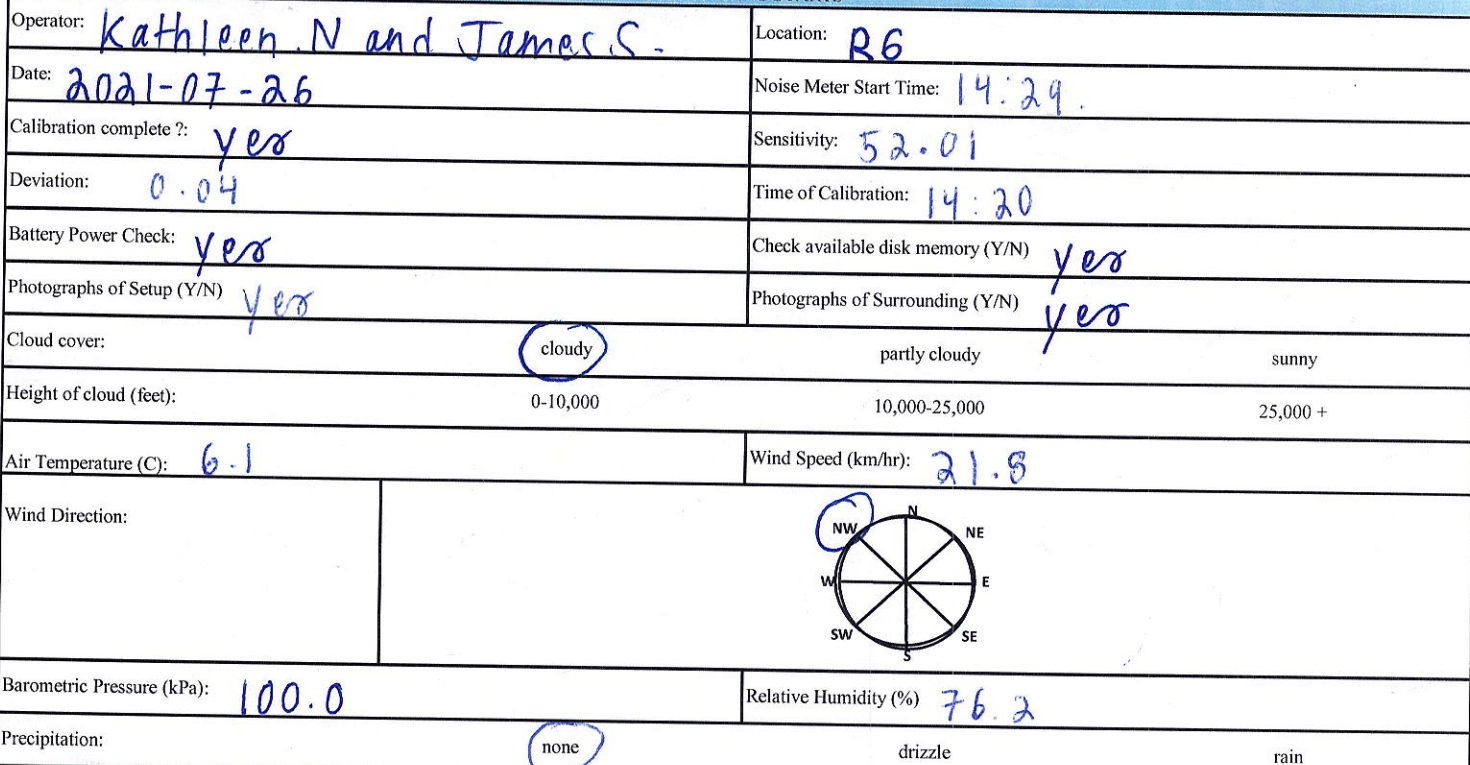 Operator: Kathleen.N and James.S.
Location: R6
Date: 2021-07-26
Noise Meter Start Time: 14:29.
Calibration complete ?: yes
Sensitivity: 52.01
Deviation: 0.04
Time of Calibration: 14:20
Battery Power Check: yes
Check available disk memory (Y/N) yes
Photographs of Setup (Y/N) yes
Photographs of Surrounding (Y/N) yes
Cloud cover: cloudy partly cloudy sunny
Height of cloud (feet): 0-10,000 10,000-25,000 25,000 +
Air Temperature (C): 6.1
Wind Speed (km/hr): 21.8
Wind Direction:
N
NW NE
W E
SW SE
S
Barometric Pressure (kPa): 100.0
Relative Humidity (%) 76.2
Precipitation: none drizzle rain